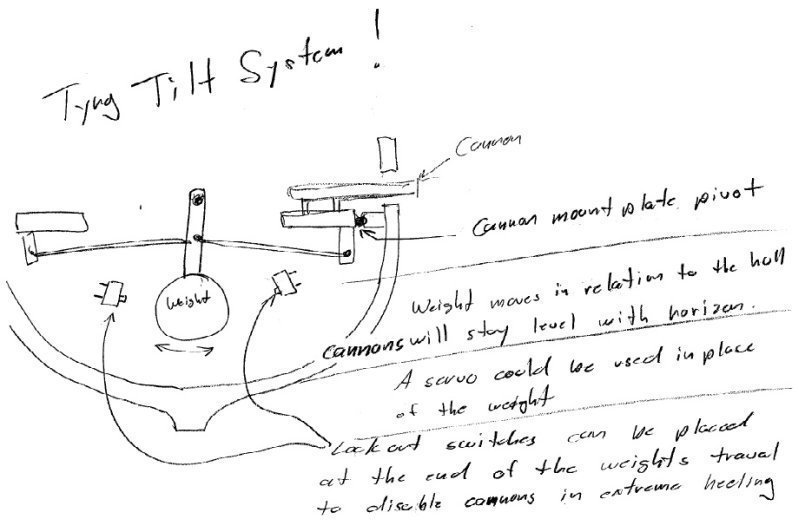 Tyng Tilt System!
Cannon
Cannon mount plate pivot
Weight
Weight moves in relation to the hull
cannons will stay level with horizon.
A servo could be used in place
of the weight
Lockout switches can be placed
at the end of the weights traval
to disable cannons in extreme heeling